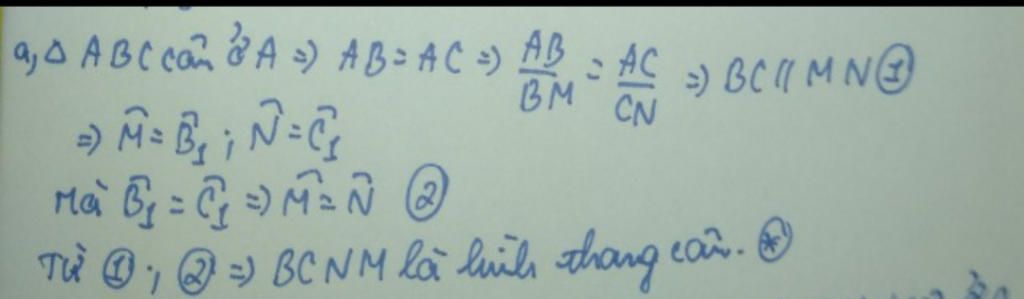 a, Δ ABC cân ở A => AB = AC => AB/BM = AC/CN => BC // MN ①
=> M̂ = B̂₁ ; N̂ = Ĉ₁
Mà B̂₁ = Ĉ₁ => M̂ = N̂ ②
Từ ① ; ② => BCNM là hình thang cân. (*)